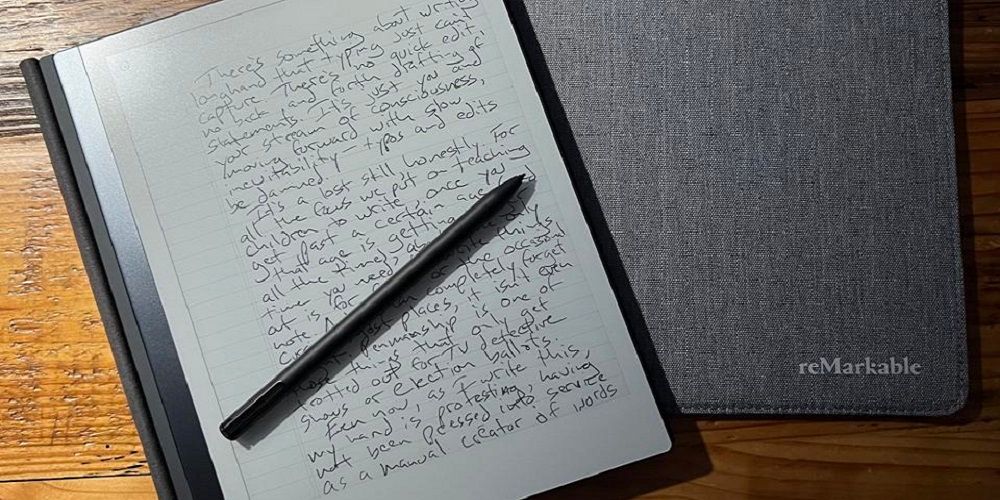 There's something about writing
longhand that typing just can't
capture. There's no quick edit,
no back and forth drafting of
statements. It's just you and
your stream of consciousness,
moving forward with slow
inevitability – typos and edits
be damned.
It's a lost still, honestly. For
all the focus we put on teaching
children to write, once you
get past a certain age and
that age is getting
all the time), about the only
time you need to write things
out is for the occasional
note. And completely forget
Cursive
most places, it isn't even
taught. Penmanship is one of
those things that only get
trotted out for TV detective
shows or election ballots.
Even now, as I write this,
my hand is protesting, having
not been pressed into service
as a manual creator of words
reMarkable